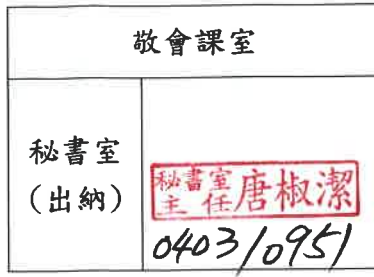 敬會課室
秘書室
（出納）
秘書室
主任
唐椒潔
0403/0951